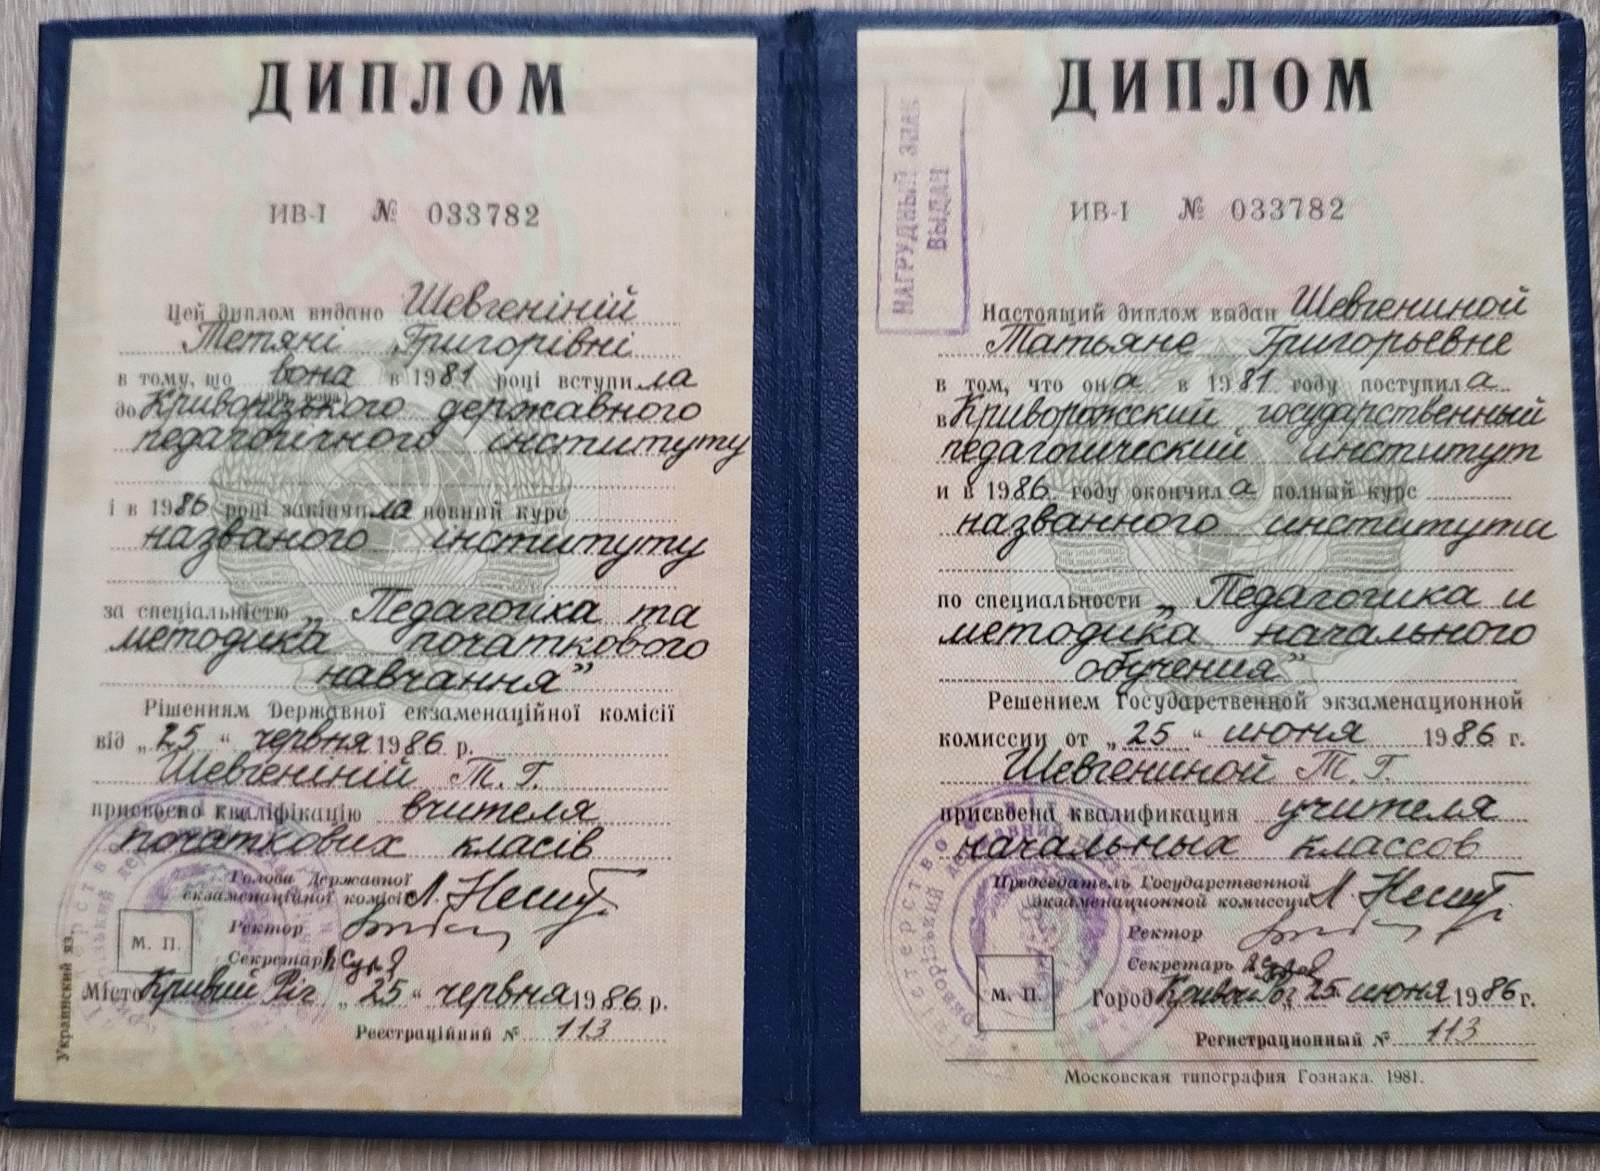 ДИПЛОМ
ИВ-I № 033782
Цей диплом видано Шевгеніній
Тетяні Григорівні
в тому, що вона в 1981 році вступила
до Криворізького державного
педагогічного інституту
і в 1986 році закінчила повний курс
названого інституту
за спеціальністю „Педагогіка та
методика початкового
навчання”
Рішенням Державної екзаменаційної комісії
від „25“ червня 1986 р.
Шевгеніній Т. Г.
присвоєно кваліфікацію вчителя
початкових класів
Голова Державної
екзаменаційної комісії
Ректор
Секретар
М. П.
Місто Кривий Ріг „25“ червня 1986 р.
Реєстраційний № 113
Украинский яз.
ДИПЛОМ
НАГРУДНЫЙ ЗНАК
ВЫДАН
ИВ-I № 033782
Настоящий диплом выдан Шевгениной
Татьяне Григорьевне
в том, что она в 1981 году поступила
в Криворожский государственный
педагогический институт
и в 1986 году окончила полный курс
названного института
по специальности „Педагогика и
методика начального
обучения”
Решением Государственной экзаменационной
комиссии от „25“ июня 1986 г.
Шевгениной Т. Г.
присвоена квалификация учителя
начальных классов
Председатель Государственной
экзаменационной комиссии
Ректор
Секретарь
М. П.
Город Кривой Рог „25 июня 1986 г.
Регистрационный № 113
Московская типография Гознака. 1981.